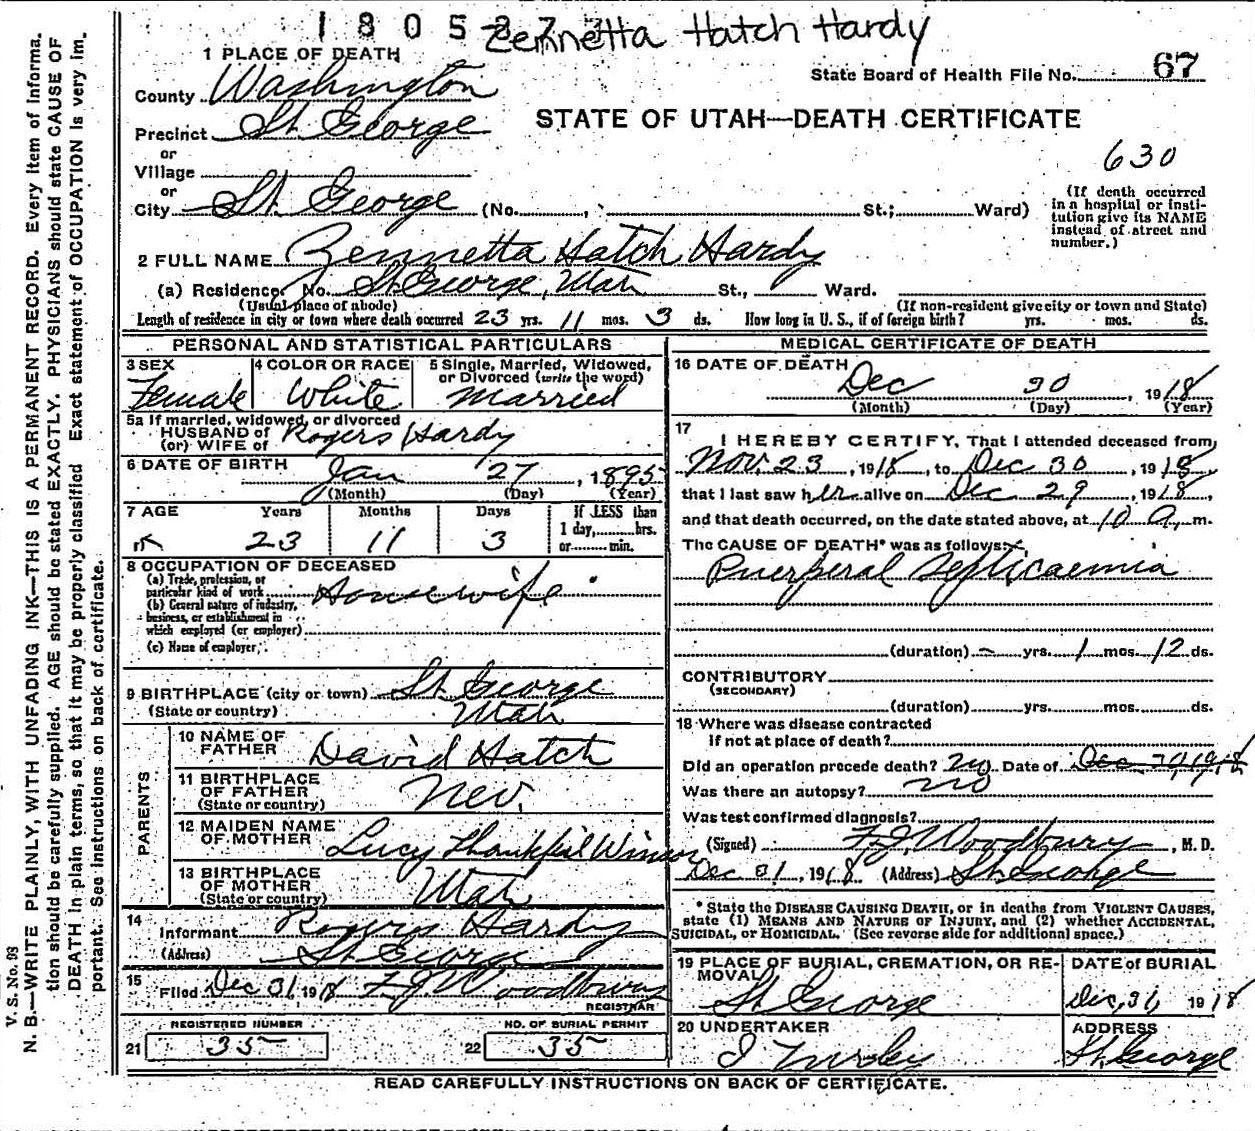 1 8 0 5 8 7 7
Zennetta Hatch Hardy
1 PLACE OF DEATH
State Board of Health File No. 67
County Washington
STATE OF UTAH—DEATH CERTIFICATE
Precinct St George
or
Village
630
or
City St. George (No. , St.; Ward)
(If death occurred in a hospital or institution give its NAME instead of street and number.)
2 FULL NAME Zennetta Hatch Hardy
(a) Residence, No. St George, Utah St., Ward.
(Usual place of abode) (If non-resident give city or town and State)
Length of residence in city or town where death occurred 23 yrs. 11 mos. 3 ds. How long in U. S., if of foreign birth? yrs. mos. ds.
PERSONAL AND STATISTICAL PARTICULARS
3 SEX Female
4 COLOR OR RACE White
5 Single, Married, Widowed, or Divorced (write the word) Married
5a If married, widowed, or divorced
HUSBAND of
(or) WIFE of Rogers Hardy
6 DATE OF BIRTH Jan 27, 1895
(Month) (Day) (Year)
7 AGE Years Months Days If LESS than
23 11 3 1 day, hrs.
or min.
8 OCCUPATION OF DECEASED
(a) Trade, profession, or
particular kind of work Housewife
(b) General nature of industry,
business, or establishment in
which employed (or employer)
(c) Name of employer
9 BIRTHPLACE (city or town) St. George
(State or country) Utah
PARENTS
10 NAME OF FATHER David Hatch
11 BIRTHPLACE OF FATHER (State or country) Nev.
12 MAIDEN NAME OF MOTHER Lucy Thankful Winsor
13 BIRTHPLACE OF MOTHER (State or country) Utah
14 Informant Rogers Hardy
(Address) St George
15 Filed Dec 31, 1918 F. J. Woodbury
REGISTRAR
REGISTERED NUMBER NO. OF BURIAL PERMIT
21 35 22 35
MEDICAL CERTIFICATE OF DEATH
16 DATE OF DEATH
Dec 30, 1918
(Month) (Day) (Year)
17 I HEREBY CERTIFY, That I attended deceased from
Nov. 23, 1918, to Dec 30, 1918,
that I last saw her alive on Dec 29, 1918,
and that death occurred, on the date stated above, at 10 a. m.
The CAUSE OF DEATH* was as follows:
Puerperal Septicaemia
(duration) – yrs. 1 mos. 12 ds.
CONTRIBUTORY
(SECONDARY)
(duration) yrs. mos. ds.
18 Where was disease contracted
If not at place of death?
Did an operation precede death? No. Date of
Was there an autopsy? no
Was test confirmed diagnosis?
(Signed) F. J. Woodbury, M.D.
Dec 31, 1918 (Address) St George
* State the DISEASE CAUSING DEATH, or in deaths from VIOLENT CAUSES,
state (1) MEANS AND NATURE OF INJURY, and (2) whether ACCIDENTAL,
SUICIDAL, or HOMICIDAL. (See reverse side for additional space.)
19 PLACE OF BURIAL, CREMATION, OR REMOVAL St George
DATE of BURIAL Dec, 31, 1918
20 UNDERTAKER
ADDRESS St. George
READ CAREFULLY INSTRUCTIONS ON BACK OF CERTIFICATE.
V. S. No. 98
N. B.—WRITE PLAINLY, WITH UNFADING INK—THIS IS A PERMANENT RECORD. Every item of informa-
tion should be carefully supplied. AGE should be stated EXACTLY. PHYSICIANS should state CAUSE OF
DEATH in plain terms, so that it may be properly classified. Exact statement of OCCUPATION is very im-
portant. See instructions on back of certificate.